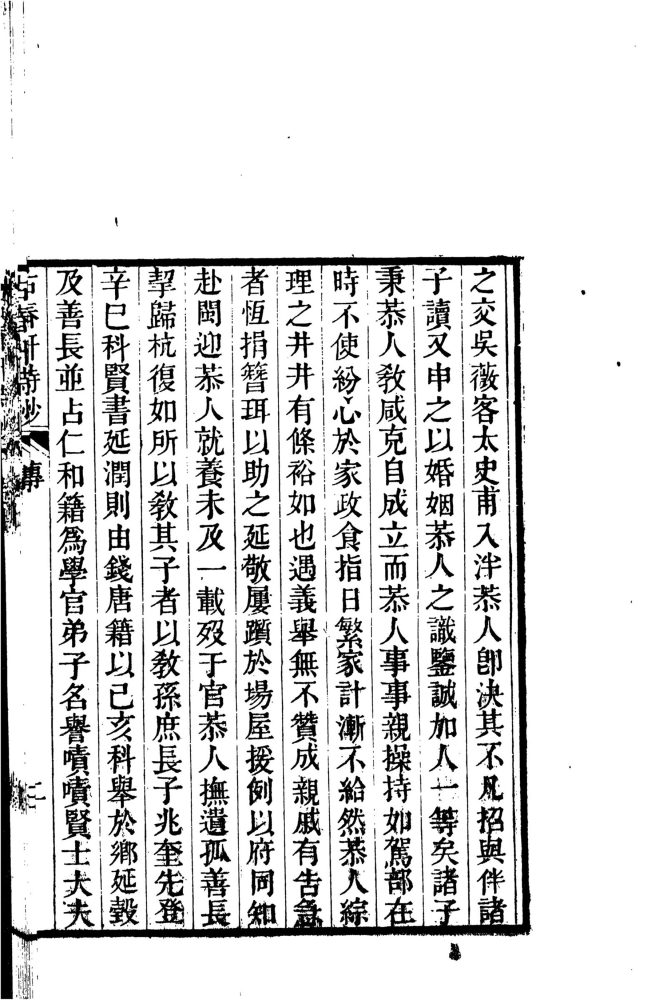 之交吳薇客太史甫入泮恭人卽決其不凡招與伴諸
子讀又申之以婚姻恭人之識鑒誠加人一等矣諸子
秉恭人敎咸克自成立而恭人事事親操持如駕部在
時不使紛心於家政食指日繁家計漸不給然恭人綜
理之井井有條裕如也遇義舉無不贊成親戚有告急
者恆捐簪珥以助之延敬屢躓於場屋援例以府同知
赴閩迎恭人就養未及一載歿于官恭人撫遺孤善長
挈歸杭復如所以敎其子者以敎孫庶長子兆奎先登
辛巳科賢書延潤則由錢唐籍以己亥科舉於鄉延瑴
及善長並占仁和籍爲學官弟子名譽嘖嘖賢士大夫
古春軒詩鈔 傳 二